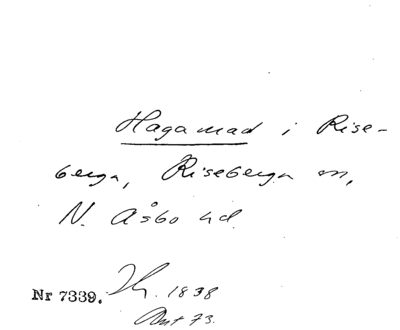 Hagamad i Rise-
berga, Riseberga sn,
N. Åsbo hd.
Nr 7339. 1838
Akt 73.